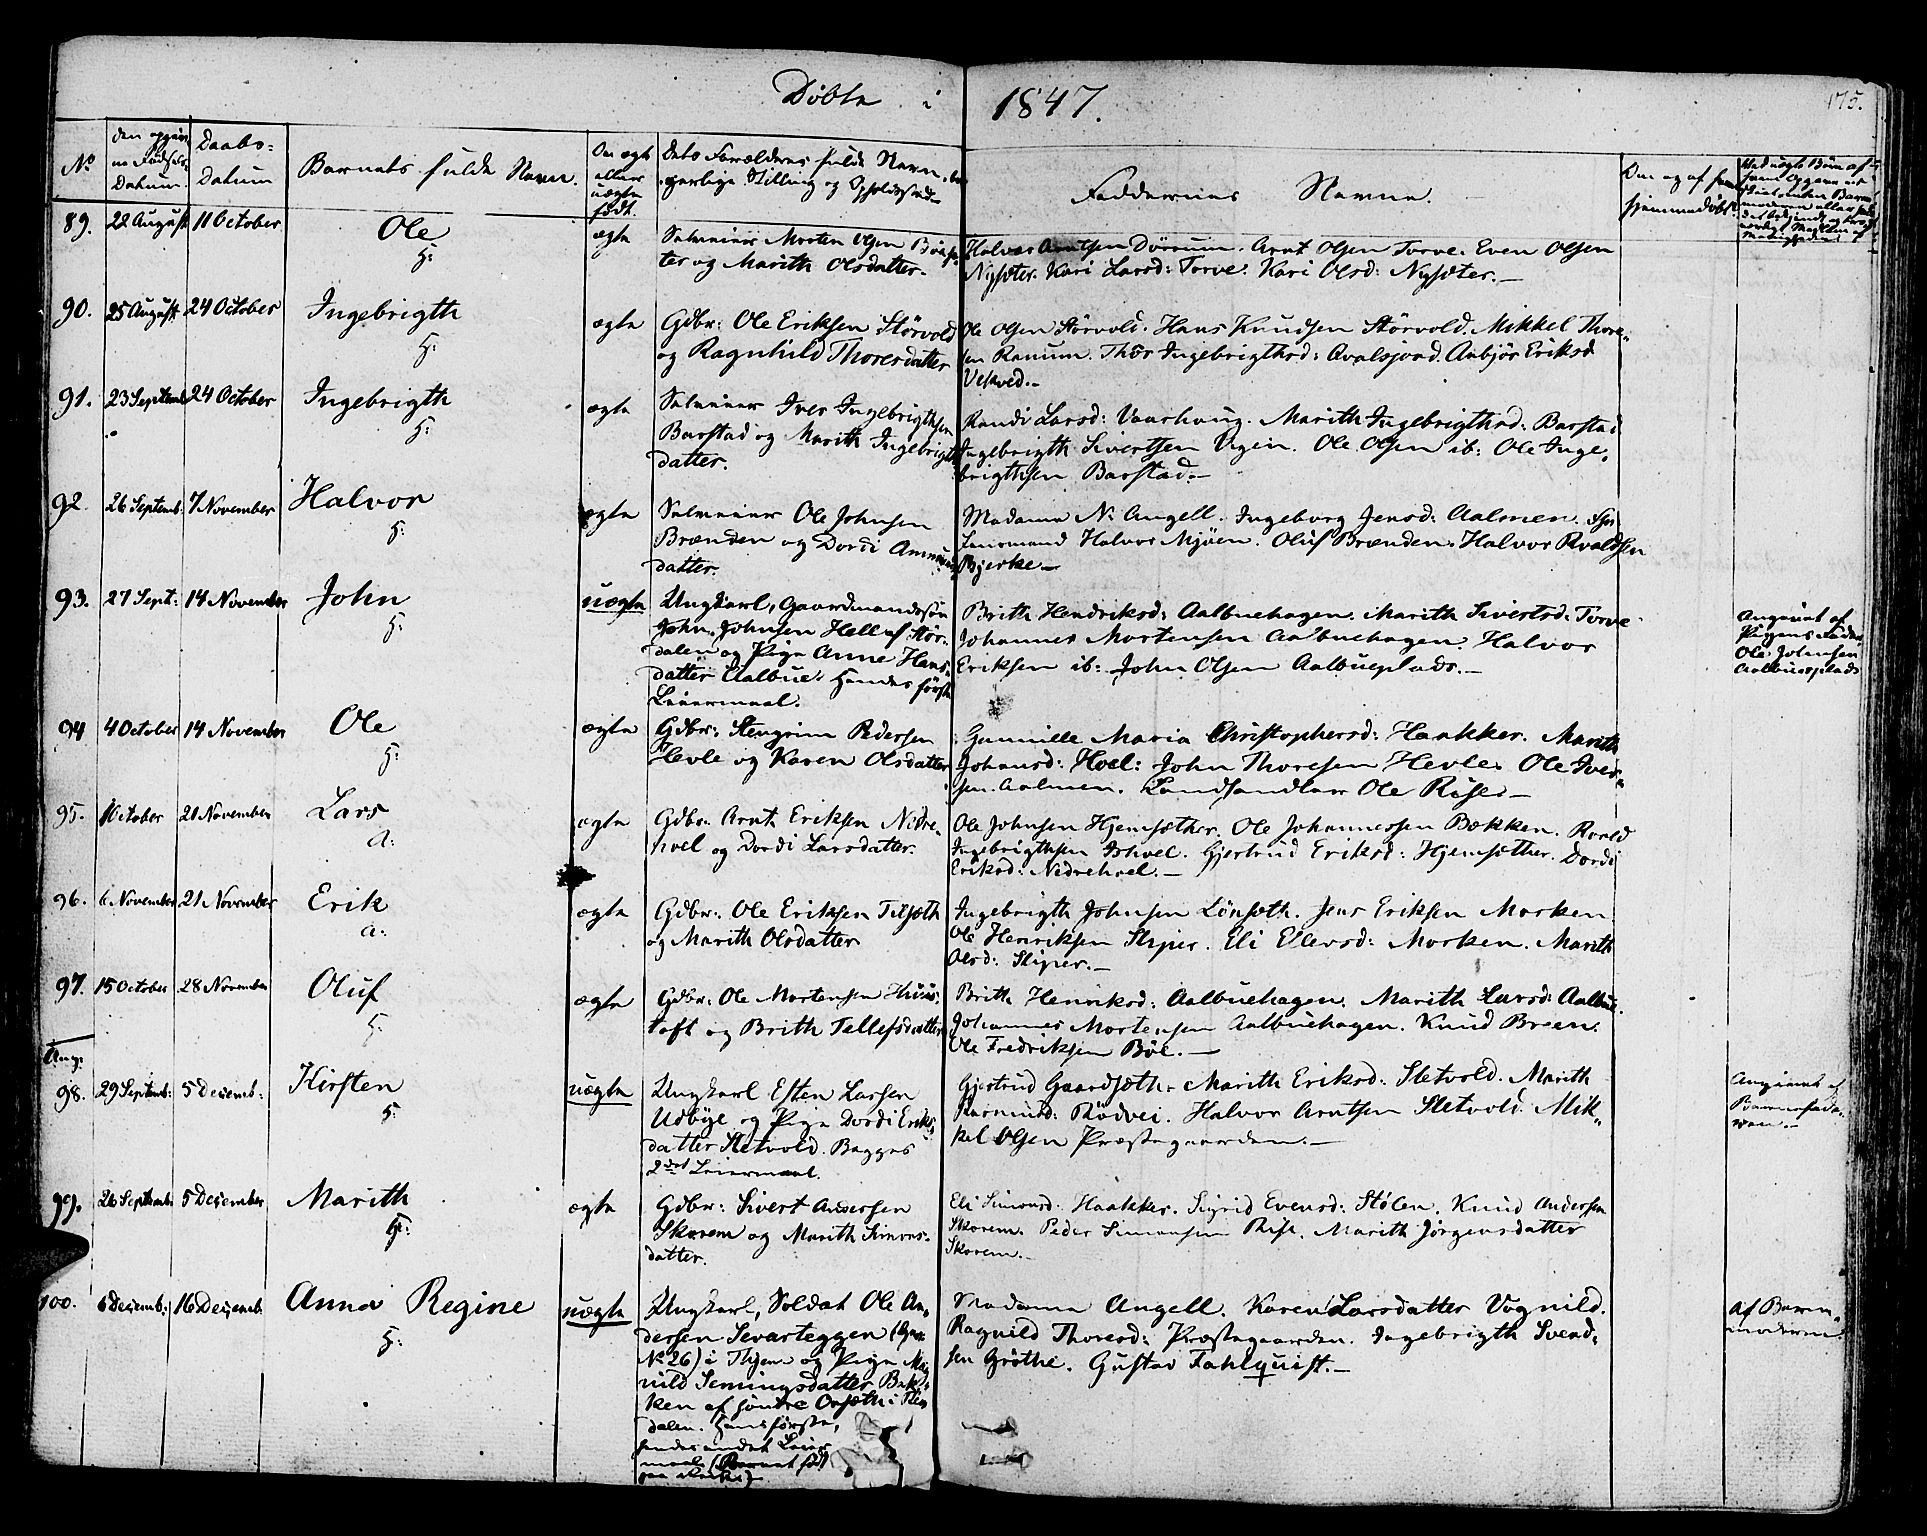 Døbte i 1847.
175.
No
den opgivne Fødsels-Datum.
Daabs-Datum
Barnets fulde Navn.
Om ægte eller uægte født.
Dets Forældres fulde Navn, borgerlige Stilling og Opholdssted.
Faddernes Navne.
89. 22 August 11 October
Ole
H:
ægte
Selveier Morten Olsen Bøesæ-
ter og Marith Olsdatter.
Halvor Arntsen Dørrum. Arnt Olsen Torve. Even Olsen
Nysæter. Kari Larsd: Torve. Kari Olsd: Nysæter.—
90. 25 August 24 October
Ingebrigth
H:
ægte
Gdbr: Ole Eriksen Størvold
og Ragnhild Thoresdatter
Ole Olsen Størvold. Hans Knudsen Størvold. Mikkel Thore-
sen Ranum. Thør Ingebrigthsd: Avalsjord. Anbjør Eriksd
Vekved.—
91. 23 Septemb 24 October
Ingebrigth
H:
ægte
Selveier Iver Ingebrigthsen
Barstad og Marith Ingebrigth
datter.
Randi Larsd: Vaarhaug. Marith Ingebrigthsd: Barstad
Ingebrigth Sivertsen Vigen. Ole Olsen ib: Ole Inge-
brigthsen Barstad.—
92. 26 Septemb: 7 November
Halvor
H:
ægte
Selveier Ole Johnsen
Brænden og Dordi Amund
datter.
Madame N. Angell. Ingeborg Jensd: Aalmen.
Lensmand Halvor Mjøen. Oluf Brænden. Halvor Roaldsen
Bjerke—
93. 27 Sept: 14 November
John
H:
uægte
Ungkarl, Gaardmandssøn
John Johnsen Hell af Stør-
dalen og Pige Anne Hans-
datter Aalbue. Hendes første
Leiermaal.
Brith Hendriksd: Aalbuehagen. Marith Sivertsd: Torve
Johannes Mortensen Aalbuehagen. Halvor
Eriksen ib: John Olsen Aalbueplads.—
Angivet af
Pigens Fader
Ole Johnsen
Aalbueplads
94 4 October 14 November
Ole
H:
ægte
Gdbr: Stengrim Pedersen
Hevle og Karen Olsdatter
Gunnille Maria Christophersd: Haakker. Marith
Johnsd: Hoel: John Thoresen Hevle. Ole Iver-
sen Aalmen. Landhandler Ole Rise.—
95. October 21 November
Lars
A:
ægte
Gdbr: Arnt Eriksen Nedre-
hoel og Dordi Larsdatter
Ole Johnsen Hjemsæther. Ole Johannessen Bækken. Roald
Ingebrigthsen Ishoel. Gjertrud Eriksd: Hjemsæther. Dordi
Eriksd: Nedrehoel.—
96. 6 November 21 November
Erik
A:
ægte
Gdbr: Ole Eriksen Tilsæth
og Marith Olsdatter
Ingebrigth Johnsen Lønsæth. Jens Eriksen Morken
Ole Henriksen Stiper. Eli Ellevsd: Morken. Marith
Olsd: Stiper.—
97. 15 October 28 November
Oluf
H:
ægte
Gdbr: Ole Mortensen Huus-
toft og Brith Tellefsdatter
Brith Henriksd: Aalbuehagen. Marith Larsd: Aalbue.
Johannes Mortensen Aalbuehagen. Knud Breen.
Ole Fredriksen Bøe.—
Ang:
98. 29 Septemb: 5 Decemb:
Kirsten
H:
uægte
Ungkarl Esten Larsen
Udbye og Pige Dordi Eriks-
datter Sletvold. Begges
2det Leiermaal.
Gjertrud Gaardsæth. Marith Eriksd: Sletvold. Marith
Rasmusd: Rødvei. Halvor Arntsen Sletvold. Mik-
kel Olsen Præstegaarden.—
Angivet af
Barnefade-
ren.—
99. 26 Septemb: 5 December
Marith
H:
ægte
Gdbr: Sivert Andersen
Skorem og Marith Simons-
datter.
Eli Simonsd: Haakker. Sigrid Evensd: Stølen. Knud Andersen
Skorem. Peder Simonsen Rise. Marith Jørgensdatter
Skorem.—
100. 6 Decemb: 16 Decemb:
Anna Regine
H:
uægte
Ungkarl, Soldat Ole An-
dersen Svarteggen (Gaard
No 26) i Thjem og Pige Mag-
nild Semingsdatter Bæk-
ken af Søndre Orsæth i Ren-
dalen. Hans første,
hendes andet Leier
maal (Barnet født
Madame Angell. Karen Larsdatter Vognild.
Ragnild Thoresd: Præstegaarden. Ingebrigth Svend-
sen Grøthe. Gustav Fahlquist.—
Af Barne-
moderen